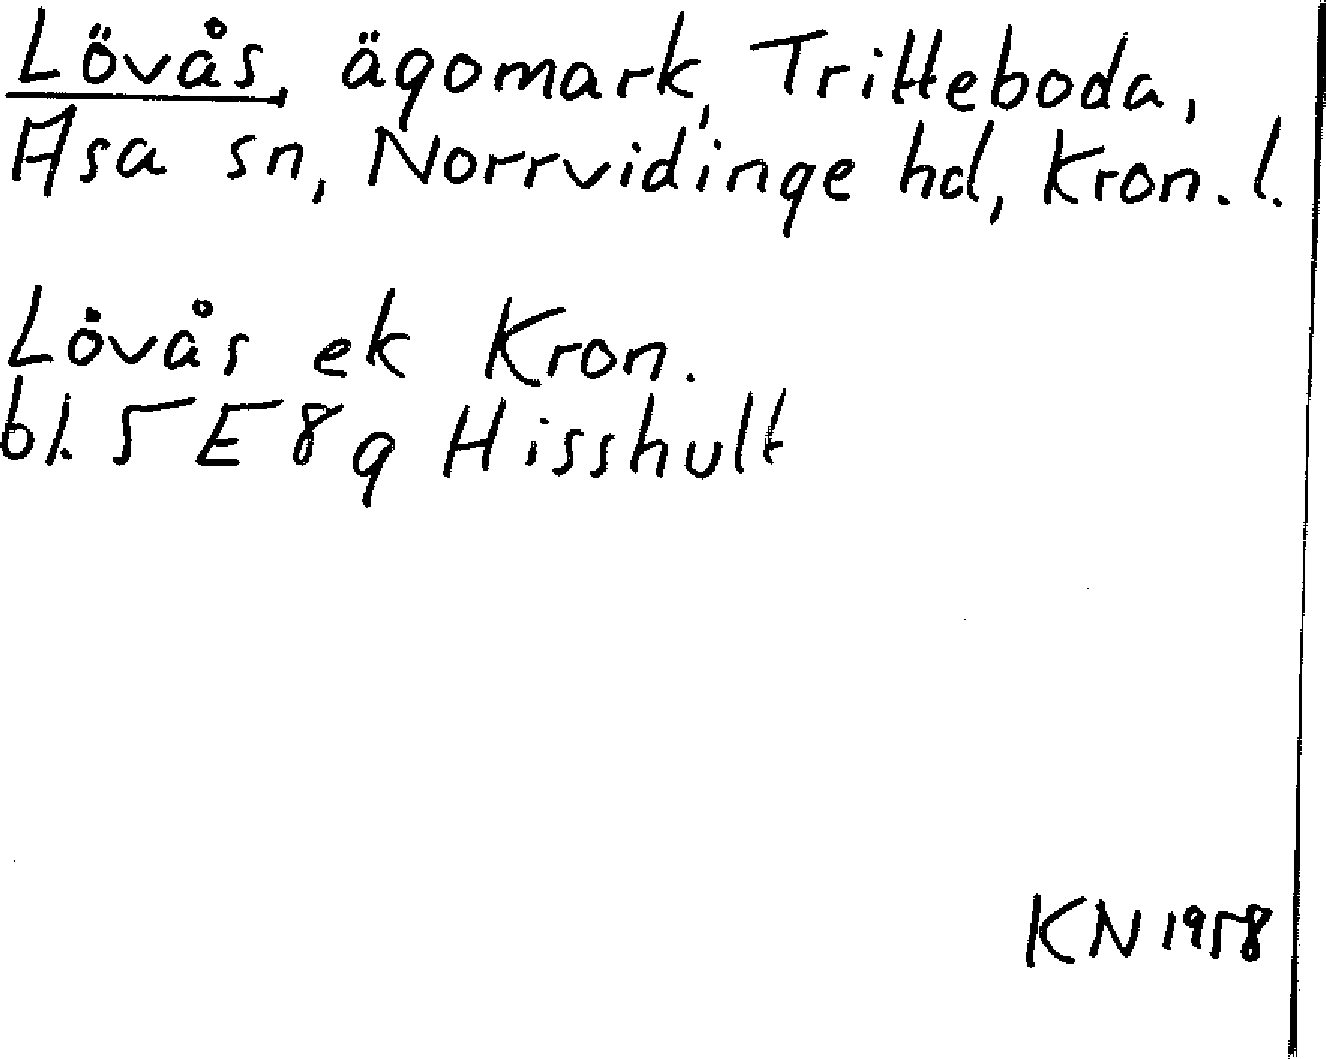 Lövås, ägomark, Tritteboda,
Asa sn, Norrvidinge hd, Kron. l.
Lövås ek Kron.
bl. 5 E 8 g Hisshult
KN 1958